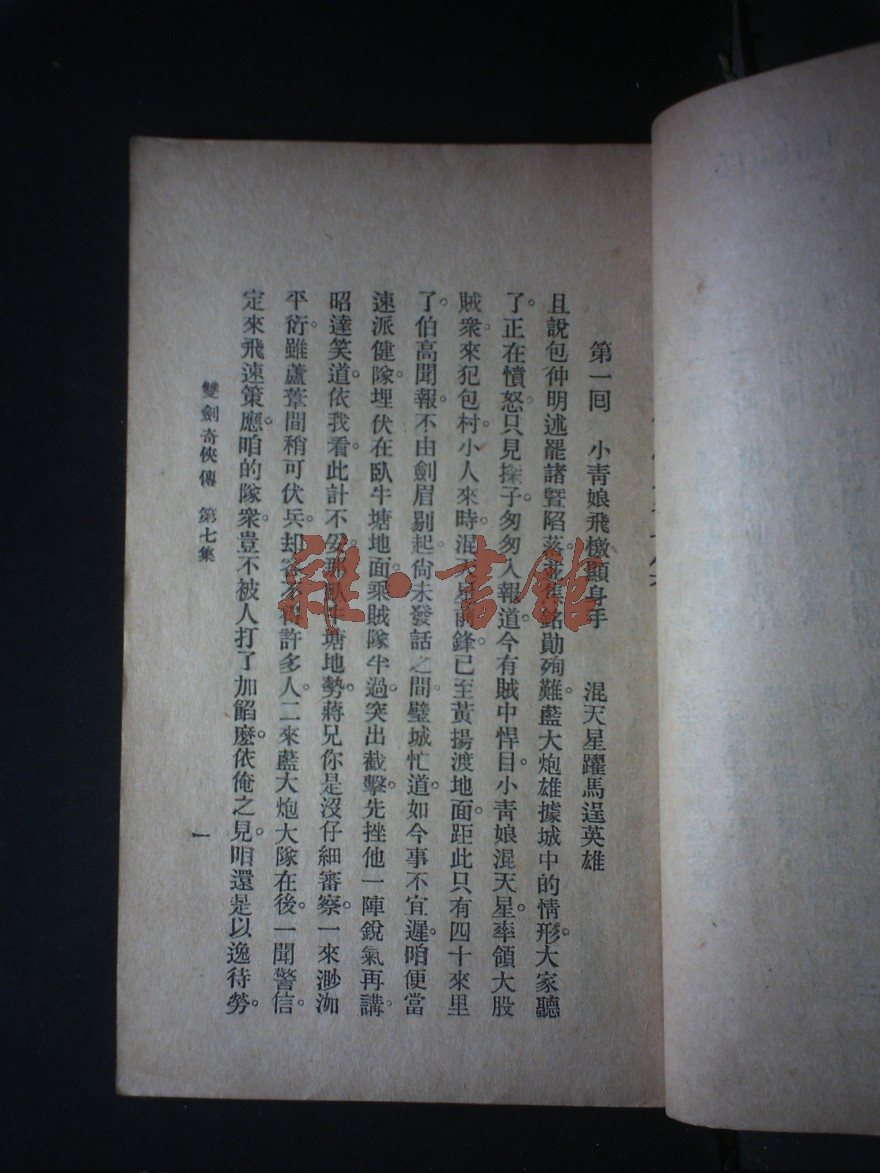 第一囘　小靑娘飛檄顯身手　混天星躍馬逞英雄
且說包仲明述罷諸暨陷落銘勛殉難。藍大炮雄據城中的情形。大家聽
了。正在憤怒。只見探子匆匆入報道。今有賊中悍目。小靑娘混天星。率領大股
賊衆。來犯包村。小人來時。混天星前鋒。已至黃揚渡地面。距此只有四十來里
了。伯高聞報。不由劍眉剔起。尙未發話之間。璧城忙道。如今事不宜遲。咱便當
速派健隊。埋伏在臥牛塘地面。乘賊隊半過。突出截擊。先挫他一陣銳氣再講。
昭達笑道。依我看此計不妥。那臥牛塘地勢。蔣兄你是沒仔細審察。一來渺沏
平衍。雖蘆葦間稍可伏兵。却容不得許多人。二來藍大炮大隊在後。一聞警信。
定來飛速策應。咱的隊衆。豈不被人打了加餡麼。依俺之見。咱還是以逸待勞。
雙劍奇俠傳　第七集
一
雜·書館